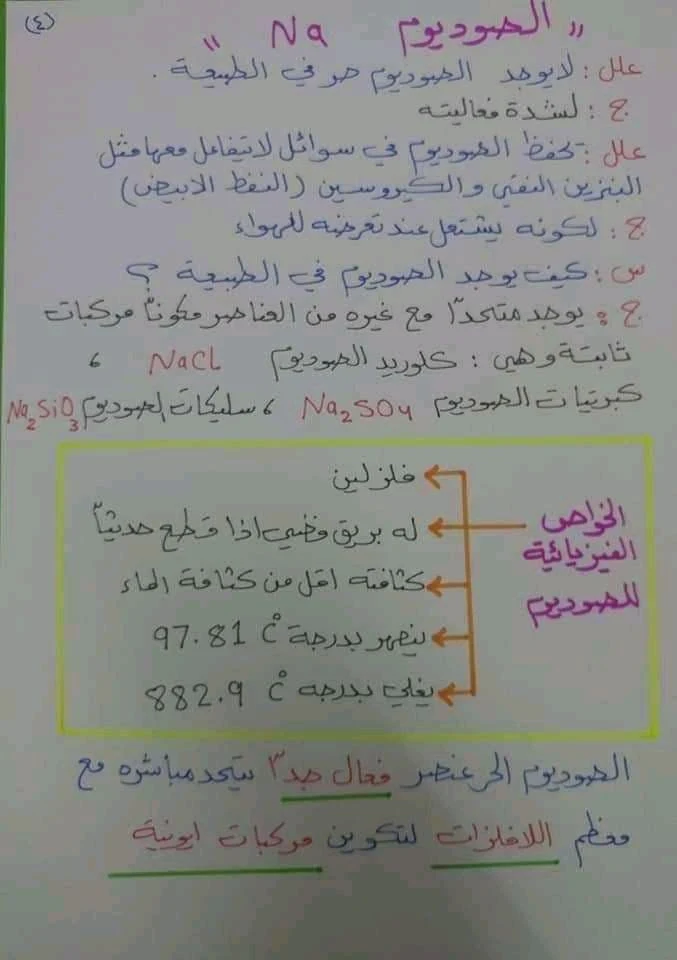 (٤)
" الصوديوم Na "
علل : لا يوجد الصوديوم حر في الطبيعة .
ج : لشدة فعاليته
علل : تحفظ الصوديوم في سوائل لا تتفاعل معها مثل
البنزين النقي والكيروسين (النفط الابيض)
ج : لكونه يشتعل عند تعرضه للهواء
س : كيف يوجد الصوديوم في الطبيعة ؟
ج : يوجد متحداً مع غيره من العناصر مكوناً مركبات
ثابتة وهي : كلوريد الصوديوم NaCl ،
كبريتات الصوديوم Na2SO4 ، سليكات الصوديوم Na2SiO3
الخواص
الفيزيائية
للصوديوم
فلز لين
له بريق فضي اذا قطع حديثاً
كثافته اقل من كثافة الماء
ينصهر بدرجة 97.81 C°
يغلي بدرجه 882.9 C°
الصوديوم الحر عنصر فعال جداً يتحد مباشره مع
معظم اللافلزات لتكوين مركبات ايونية